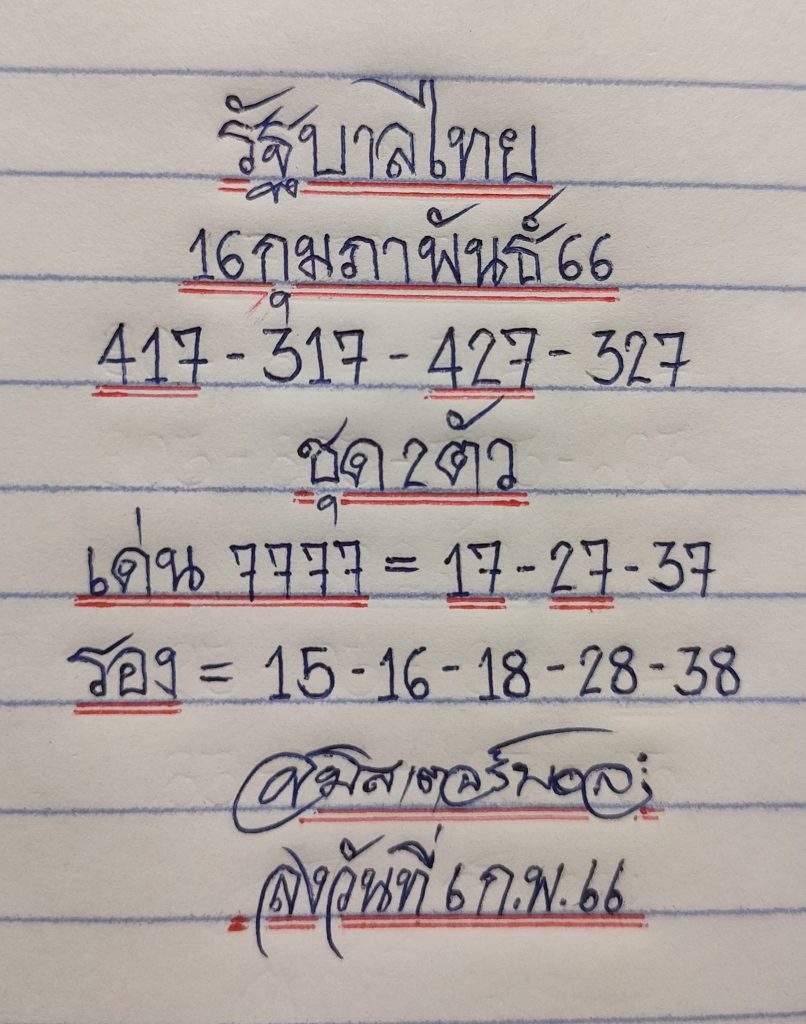 รัฐบาลไทย
16 กุมภาพันธ์ 66
417 - 317 - 427 - 327
ชุด 2 ตัว
เด่น 7777 = 17 - 27 - 37
รอง = 15 - 16 - 18 - 28 - 38
มิสเตอร์พอล
ลงวันที่ 6 ก.พ. 66